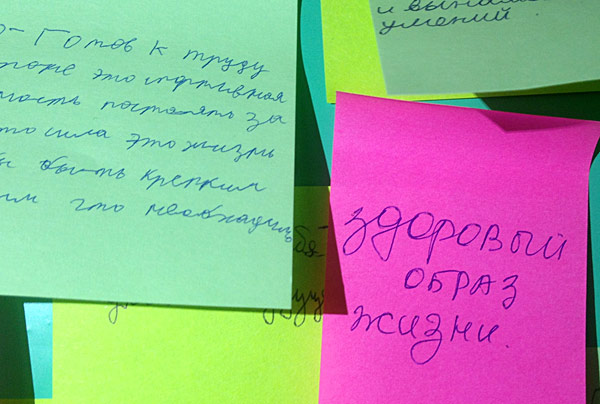 Готов к труду
это спортивная
постоять за
сила это жизнь
быть крепким
это необходимо
и вынос
умений.
здоровый
образ
жизни.